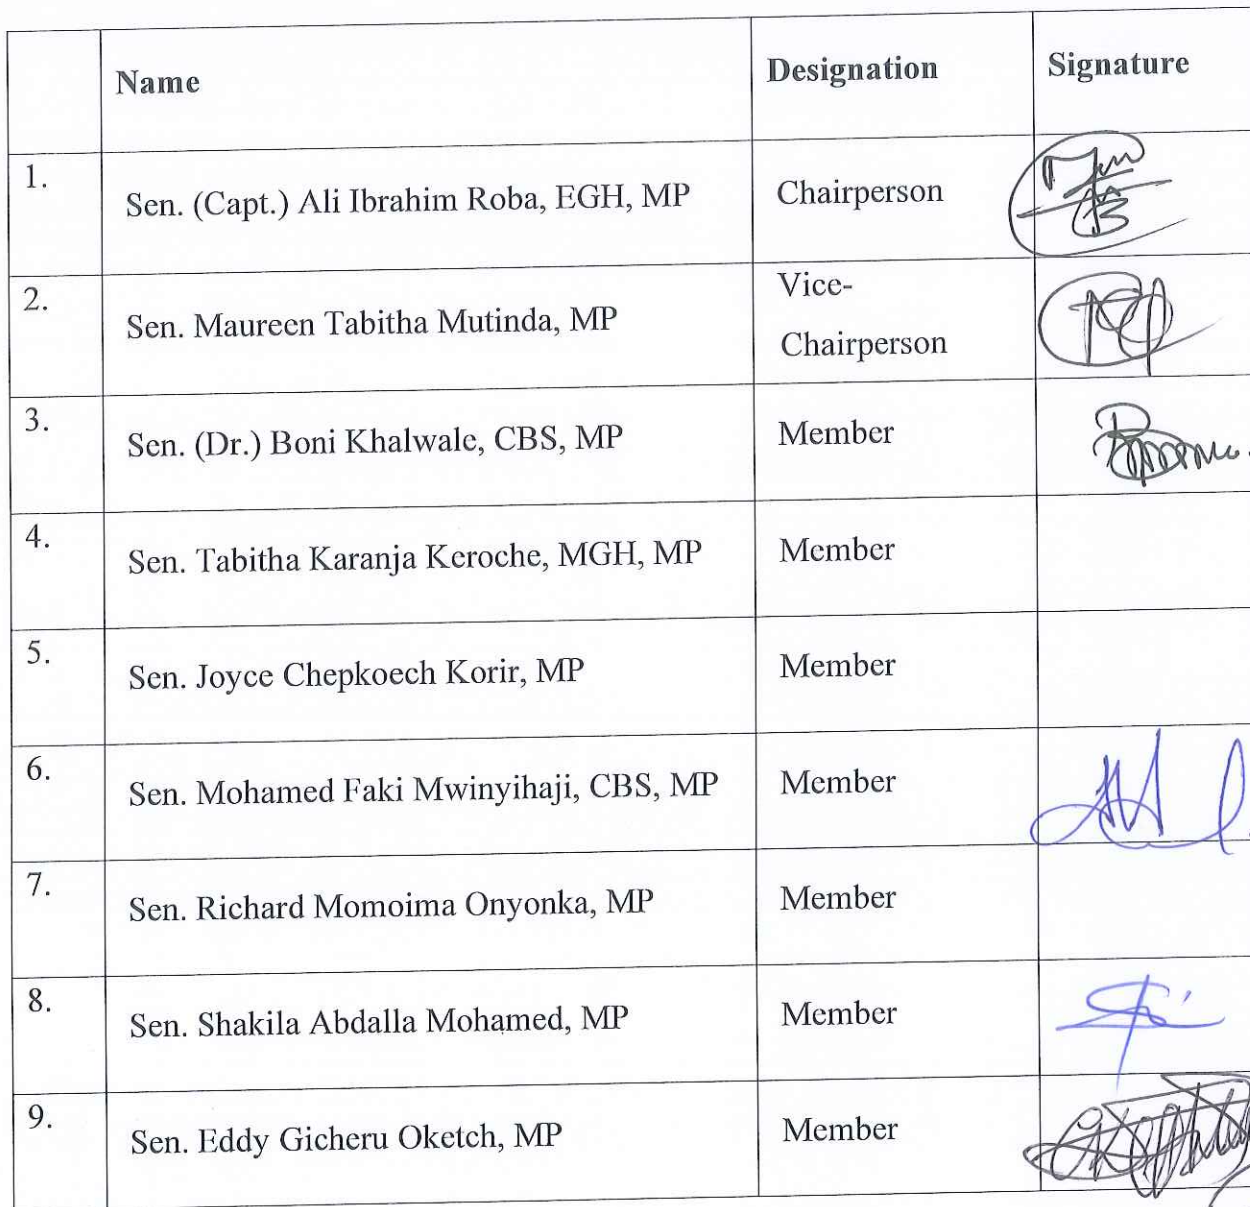 Name Designation Signature
1. Sen. (Capt.) Ali Ibrahim Roba, EGH, MP Chairperson
2. Sen. Maureen Tabitha Mutinda, MP Vice-
Chairperson
3. Sen. (Dr.) Boni Khalwale, CBS, MP Member
4. Sen. Tabitha Karanja Keroche, MGH, MP Member
5. Sen. Joyce Chepkoech Korir, MP Member
6. Sen. Mohamed Faki Mwinyihaji, CBS, MP Member
7. Sen. Richard Momoima Onyonka, MP Member
8. Sen. Shakila Abdalla Mohamed, MP Member
9. Sen. Eddy Gicheru Oketch, MP Member